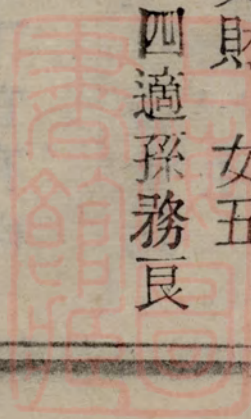 財 女五
四適孫務良